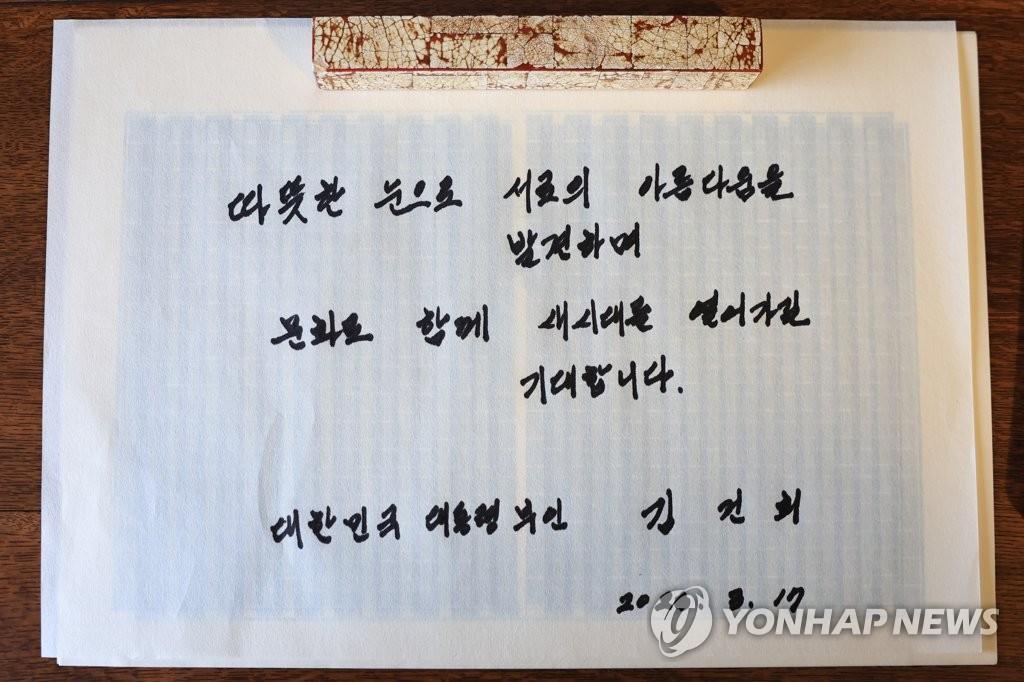 따뜻한 눈으로 서로의 아름다움을
발견하며
문화로 함께 새시대를 열어가길
기대합니다.
대한민국 대통령부인 김건희
3. 17
YONHAP NEWS